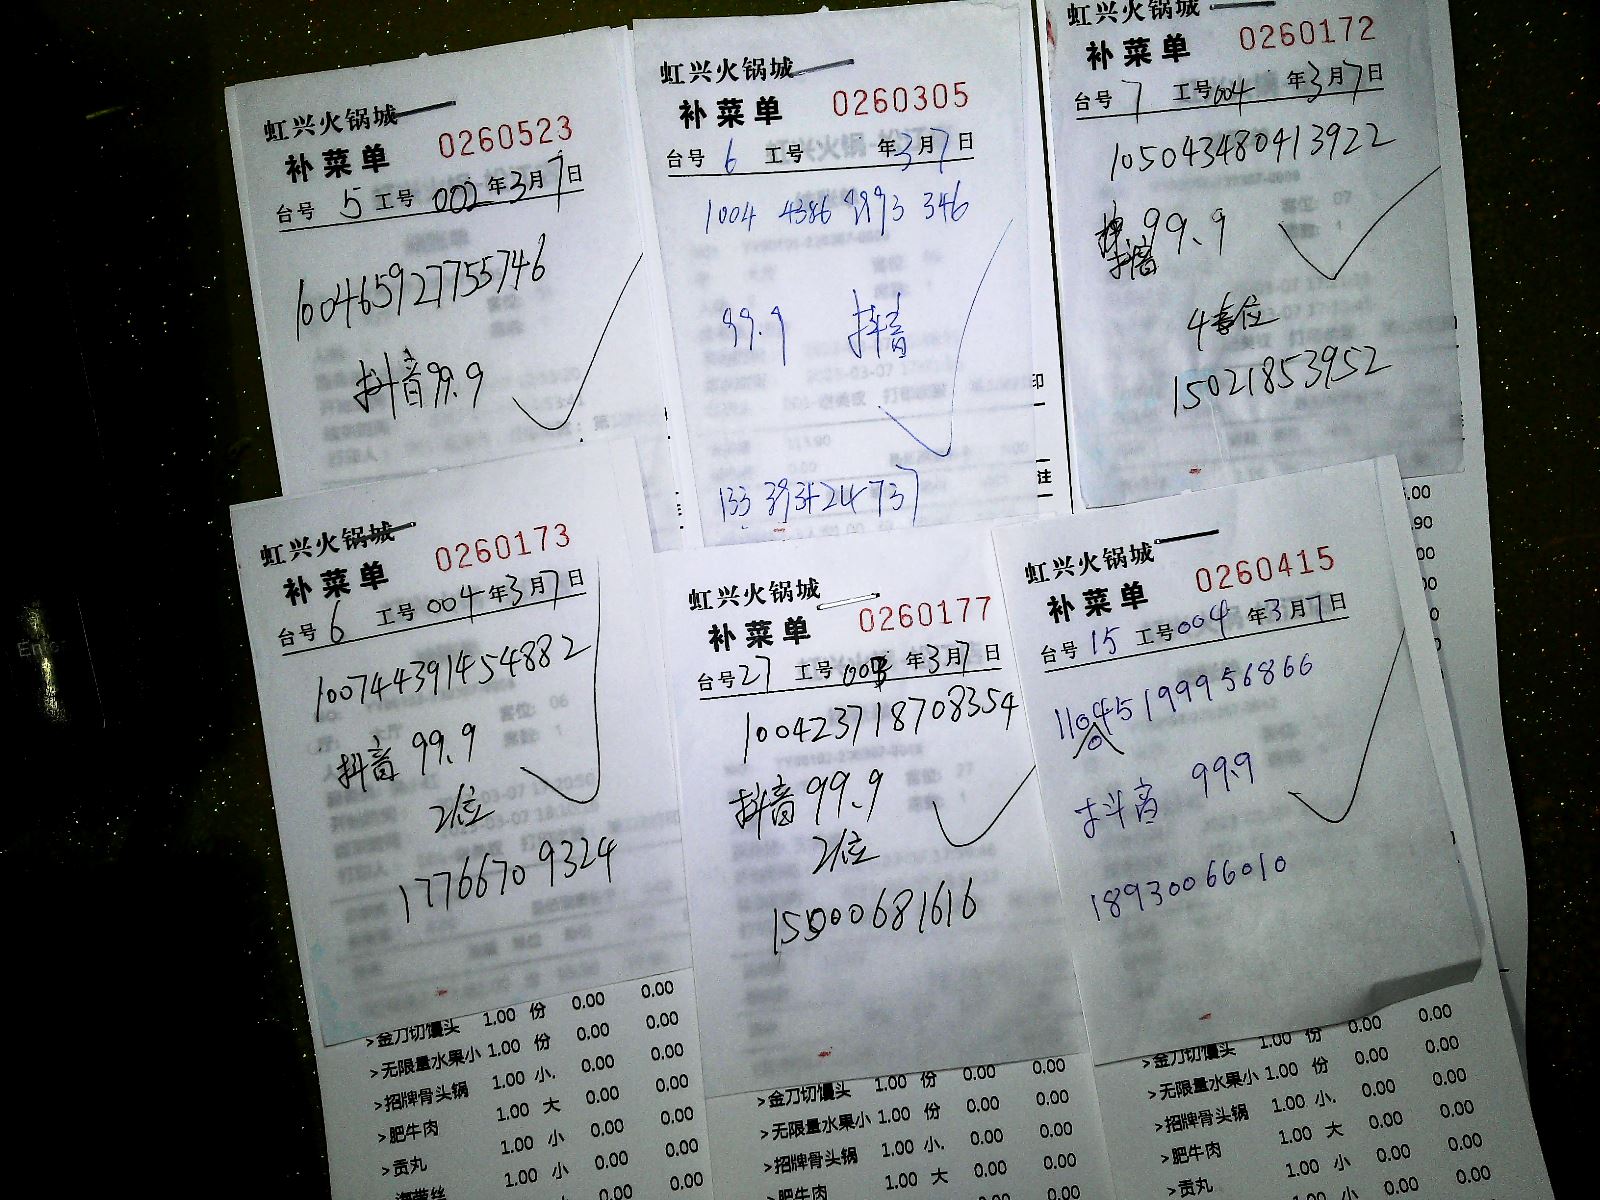 虹兴火锅城
补菜单 0260523
台号 5 工号 002 年 3 月 7 日
100465927755746
抖音 99.9
虹兴火锅城
补菜单 0260305
台号 6 工号 年 3 月 7 日
1004 4386 9893 346
99.9 抖音
印
注
虹兴火锅城
补菜单 0260172
台号 7 工号 004 年 3 月 7 日
105043480413922
抖音 99.9
4套位
15021853952
虹兴火锅城
补菜单 0260173
台号 6 工号 004 年 3 月 7 日
100744391454882
抖音 99.9
2位
17766709324
虹兴火锅城
补菜单 0260177
台号 27 工号 004 年 3 月 7 日
100423718708354
抖音 99.9
2位
15000681616
虹兴火锅城
补菜单 0260415
台号 15 工号 004 年 3 月 7 日
抖音 99.9
18930066010
>金刀切馒头 1.00 份 0.00 0.00
>无限量水果小 1.00 份 0.00 0.00
>招牌骨头锅 1.00 小. 0.00 0.00
>肥牛肉 1.00 大 0.00 0.00
>贡丸 1.00 小 0.00 0.00
>海带丝 1.00 小 0.00 0.00
>金刀切馒头 1.00 份 0.00 0.00
>无限量水果小 1.00 份 0.00 0.00
>招牌骨头锅 1.00 小. 0.00 0.00
>肥牛肉 1.00 大 0.00 0.00
>金刀切馒头 1.00 份 0.00 0.00
>无限量水果小 1.00 份 0.00 0.00
>招牌骨头锅 1.00 小. 0.00 0.00
>肥牛肉 1.00 大 0.00 0.00
>贡丸 1.00 小 0.00 0.00